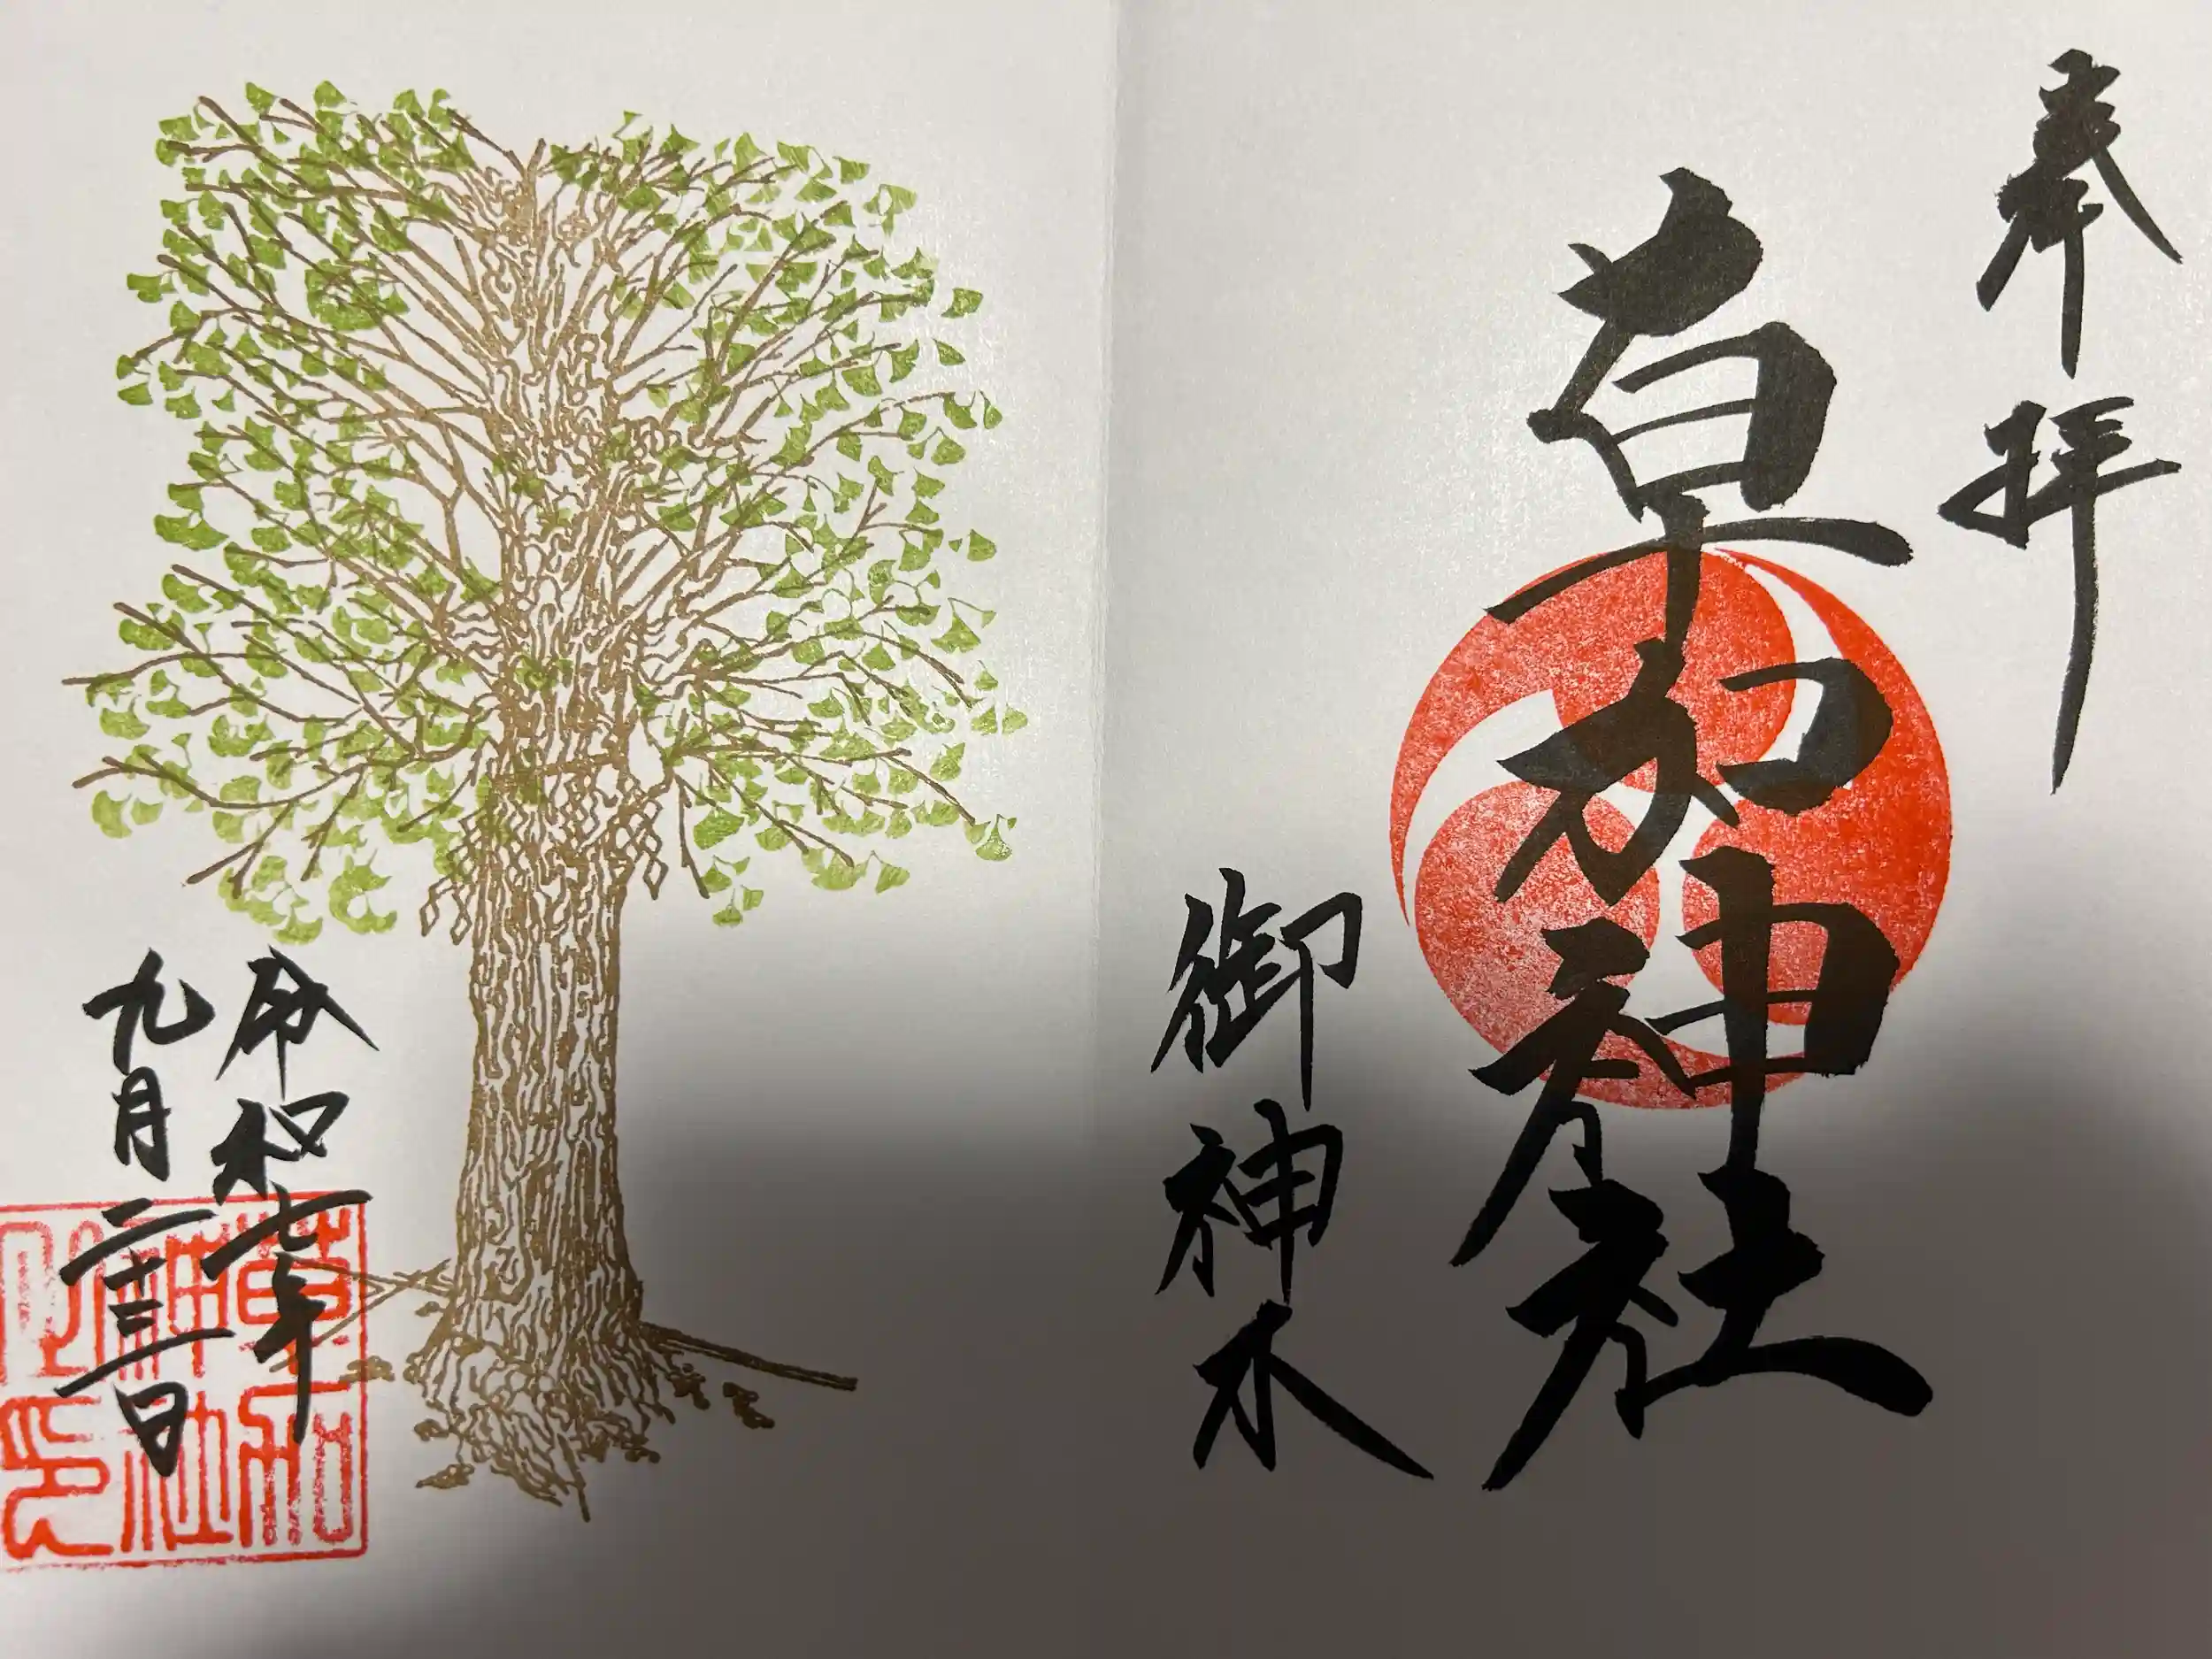 奉拝
草加神社
御神木
令和七年
九月二十三日
草加
神社
之印